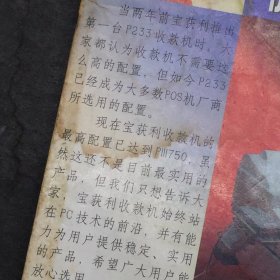 当两年前宝获利推出
第一台P233收款机时，大
家都认为收款机不需要这
么高的配置，但如今P233
已经成为大多数POS机厂商
所选用的配置。
现在宝获利收款机的
最高配置已达到PⅢ750，虽
然这还不是目前最实用的
产品，但我们只想告诉大
家，宝获利收款机始终站
在PC技术的前沿，并有能
力为用户提供稳定、实用
的产品，希望广大用户能
放心选用